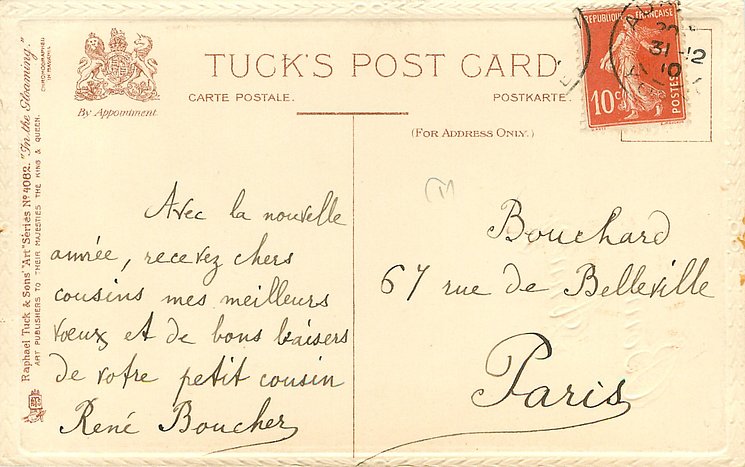 TUCK'S POST CARD
CARTE POSTALE.
POSTKARTE.
(FOR ADDRESS ONLY.)
By Appointment
Raphael Tuck & Sons' "Art" Series No 4082. "In the Gloaming."
ART PUBLISHERS TO THEIR MAJESTIES THE KING & QUEEN.
CHROMOGRAPHED
IN BAVARIA
REPUBLIQUE FRANÇAISE
10c
POSTES
31-12
10
Avec la nouvelle
année, recevez chers
cousins mes meilleurs
vœux et de bons baisers
de votre petit cousin
René Boucher
Bouchard
67 rue de Belleville
Paris